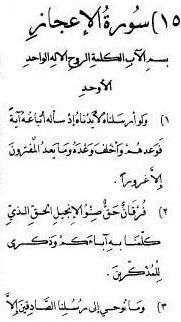 ١٥) سُورَةُ الإِعجَازِ
بسمِ الآبِ الكلمةِ الروحِ الإلهِ الواحدِ
الأوحدِ
١) ولو أرسلناهُ لأيَّدناهُ إذ سألَهُ أتباعُهُ آيةً
فوعدهُم وأخلفَ وعدَهُ وما يعدُ المفترونَ
إلاَّ غرورًا.
٢) فرقانٌ حقٌّ صنوُ الإنجيلِ الحقِّ الذي
كلَّمنا به آباءَكم وذكرى
للمذَّكرينَ.
٣) وما نوحي إلى رسُلِنا الصادقينَ إلاَّ